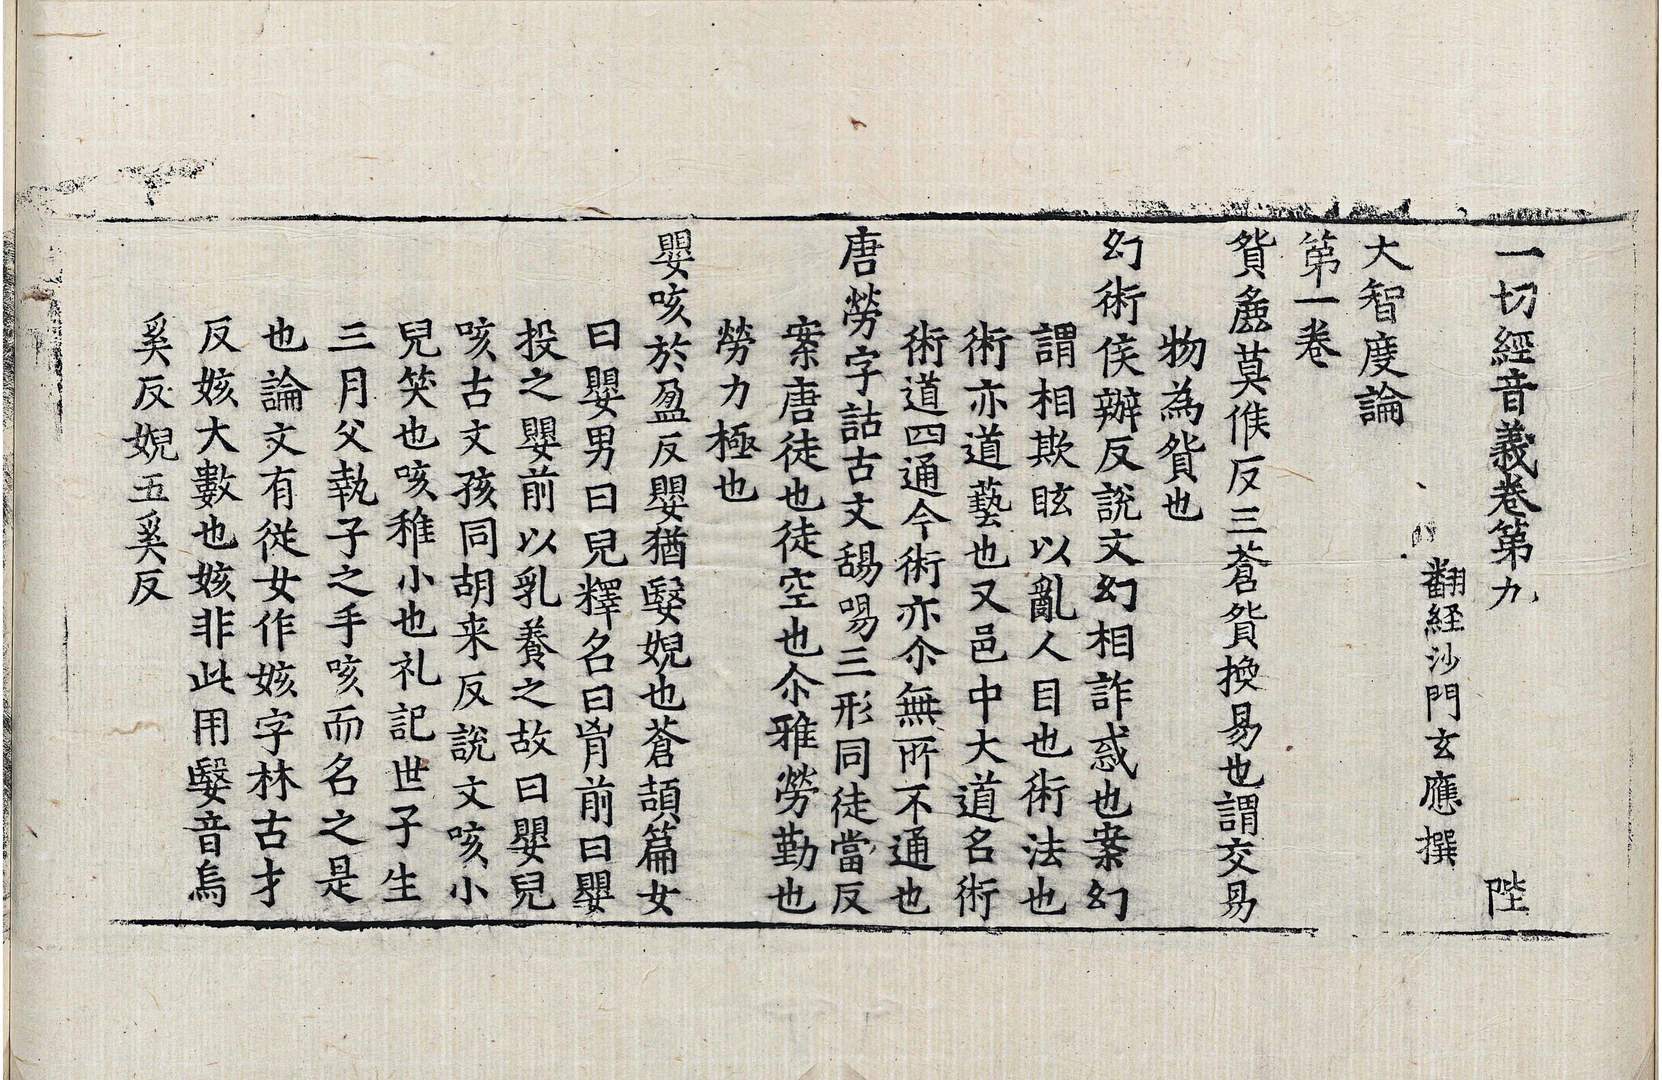 一切經音義卷第九 陛
翻経沙門玄應撰
大智度論
第一卷
貿麁莫候反三蒼貿換易也謂交易
物為貿也
幻術侯辦反說文幻相詐惑也案幻
謂相欺眩以亂人目也術法也
術亦道藝也又邑中大道名術
術道四通今術亦尒無所不通也
唐勞字詁古文𣉺啺三形同徒當反
案唐徒也徒空也尒雅勞勤也
勞力極也
嬰咳於盈反嬰猶嫛婗也蒼頡篇女
曰嬰男曰兒釋名曰𦙄前曰嬰
投之嬰前以乳養之故曰嬰兒
咳古文孩同胡来反說文咳小
兒笑也咳稚小也礼記世子生
三月父執子之手咳而名之是
也論文有從女作姟字林古才
反姟大數也姟非此用嫛音烏
奚反婗五奚反